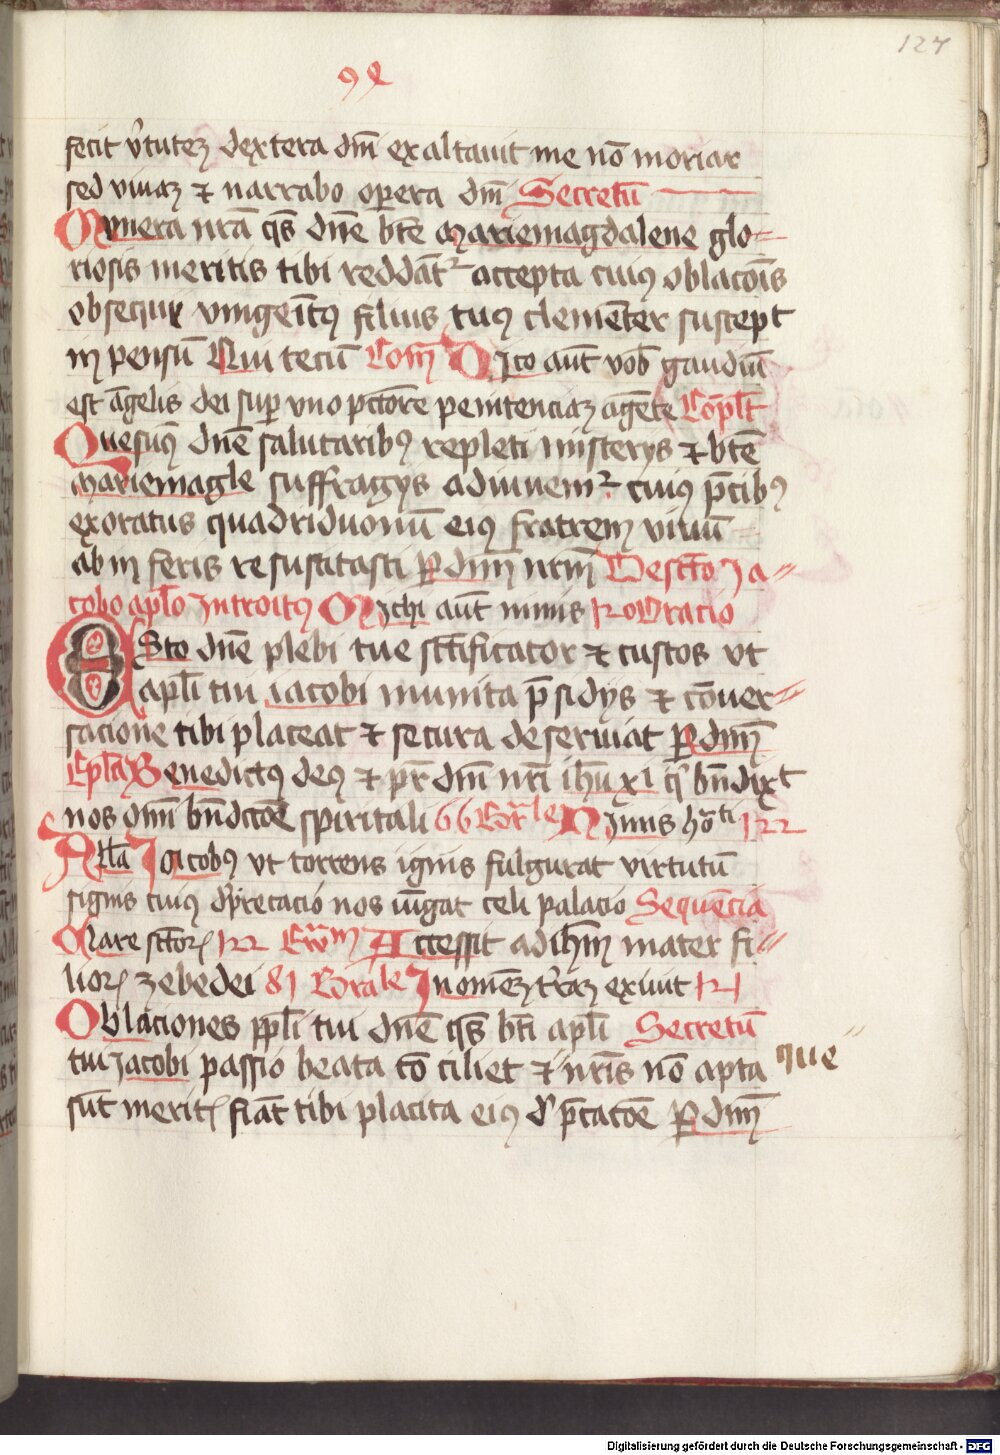 127
92
fecit v̓tutez dextera dnī exaltauit me nō moriar
sed viuaz ⁊ narrabo opera dnī Secretū
Munera nrā qs̄ dn̄e btē mariemagdalene glo-
riosis meritis tibi reddāt² accepta cuiꝰ oblacōis
obsequiū vnigeītꝰ filius tuꝰ clemēter suscept
in pensū Qui tecū Com̄ Dico aūt vob̄ gaudiū
est āgelis dei sup vno pctōre penitenciaz agēte Cōpl̄t
Quesuꝰ dn̄e salutaribꝰ repleti misterys ⁊ btē
mariemagl̄e suffragys adiuuem² cuiꝰ p̄cibꝰ
exoratus quadriduonū eiꝰ fratrem viuū
ab in feris resusitasti P dnm̄ nrm̄ De sctō Ja-
cobo apl̄o Introitꝰ Michi aūt nimis Oracio
Esto dn̄e plebi tue sctīficator ⁊ custos vt
apl̄i tui iacobi munita p̄sidys ⁊ cōuer-
sacione tibi placeat ⁊ secura deseruiat P dnm̄
Epl̄a Benedictꝰ deꝰ ⁊ pr̄ dnī nrī ihū xī q̓ bn̄dixt
nos omī bn̄dictōe spiritali 66 Gr̄le Nimis hōti
All̄a Iacobꝰ vt torrens ignis fulgurat virtutū
signis cuiꝰ dp̄recacio nos iūgat celi palacio Sequēcia
Clare sctōrꝝ Ewm̄ Accessit ad ihm̄ mater fi-
liorꝝ zebedei 81 In omēz t̓raz exiuit
Oblaciones ppl̄i tui dn̄e qs̄ btī apl̄i Secretū
tui Jacobi passio beata cō ciliet ⁊ nrīs nō apta que
sūt meritꝭ fiāt tibi placita eiꝰ d̓ p̄catōe P dnm̄
Digitalisierung gefördert durch die Deutsche Forschungsgemeinschaft - DFG